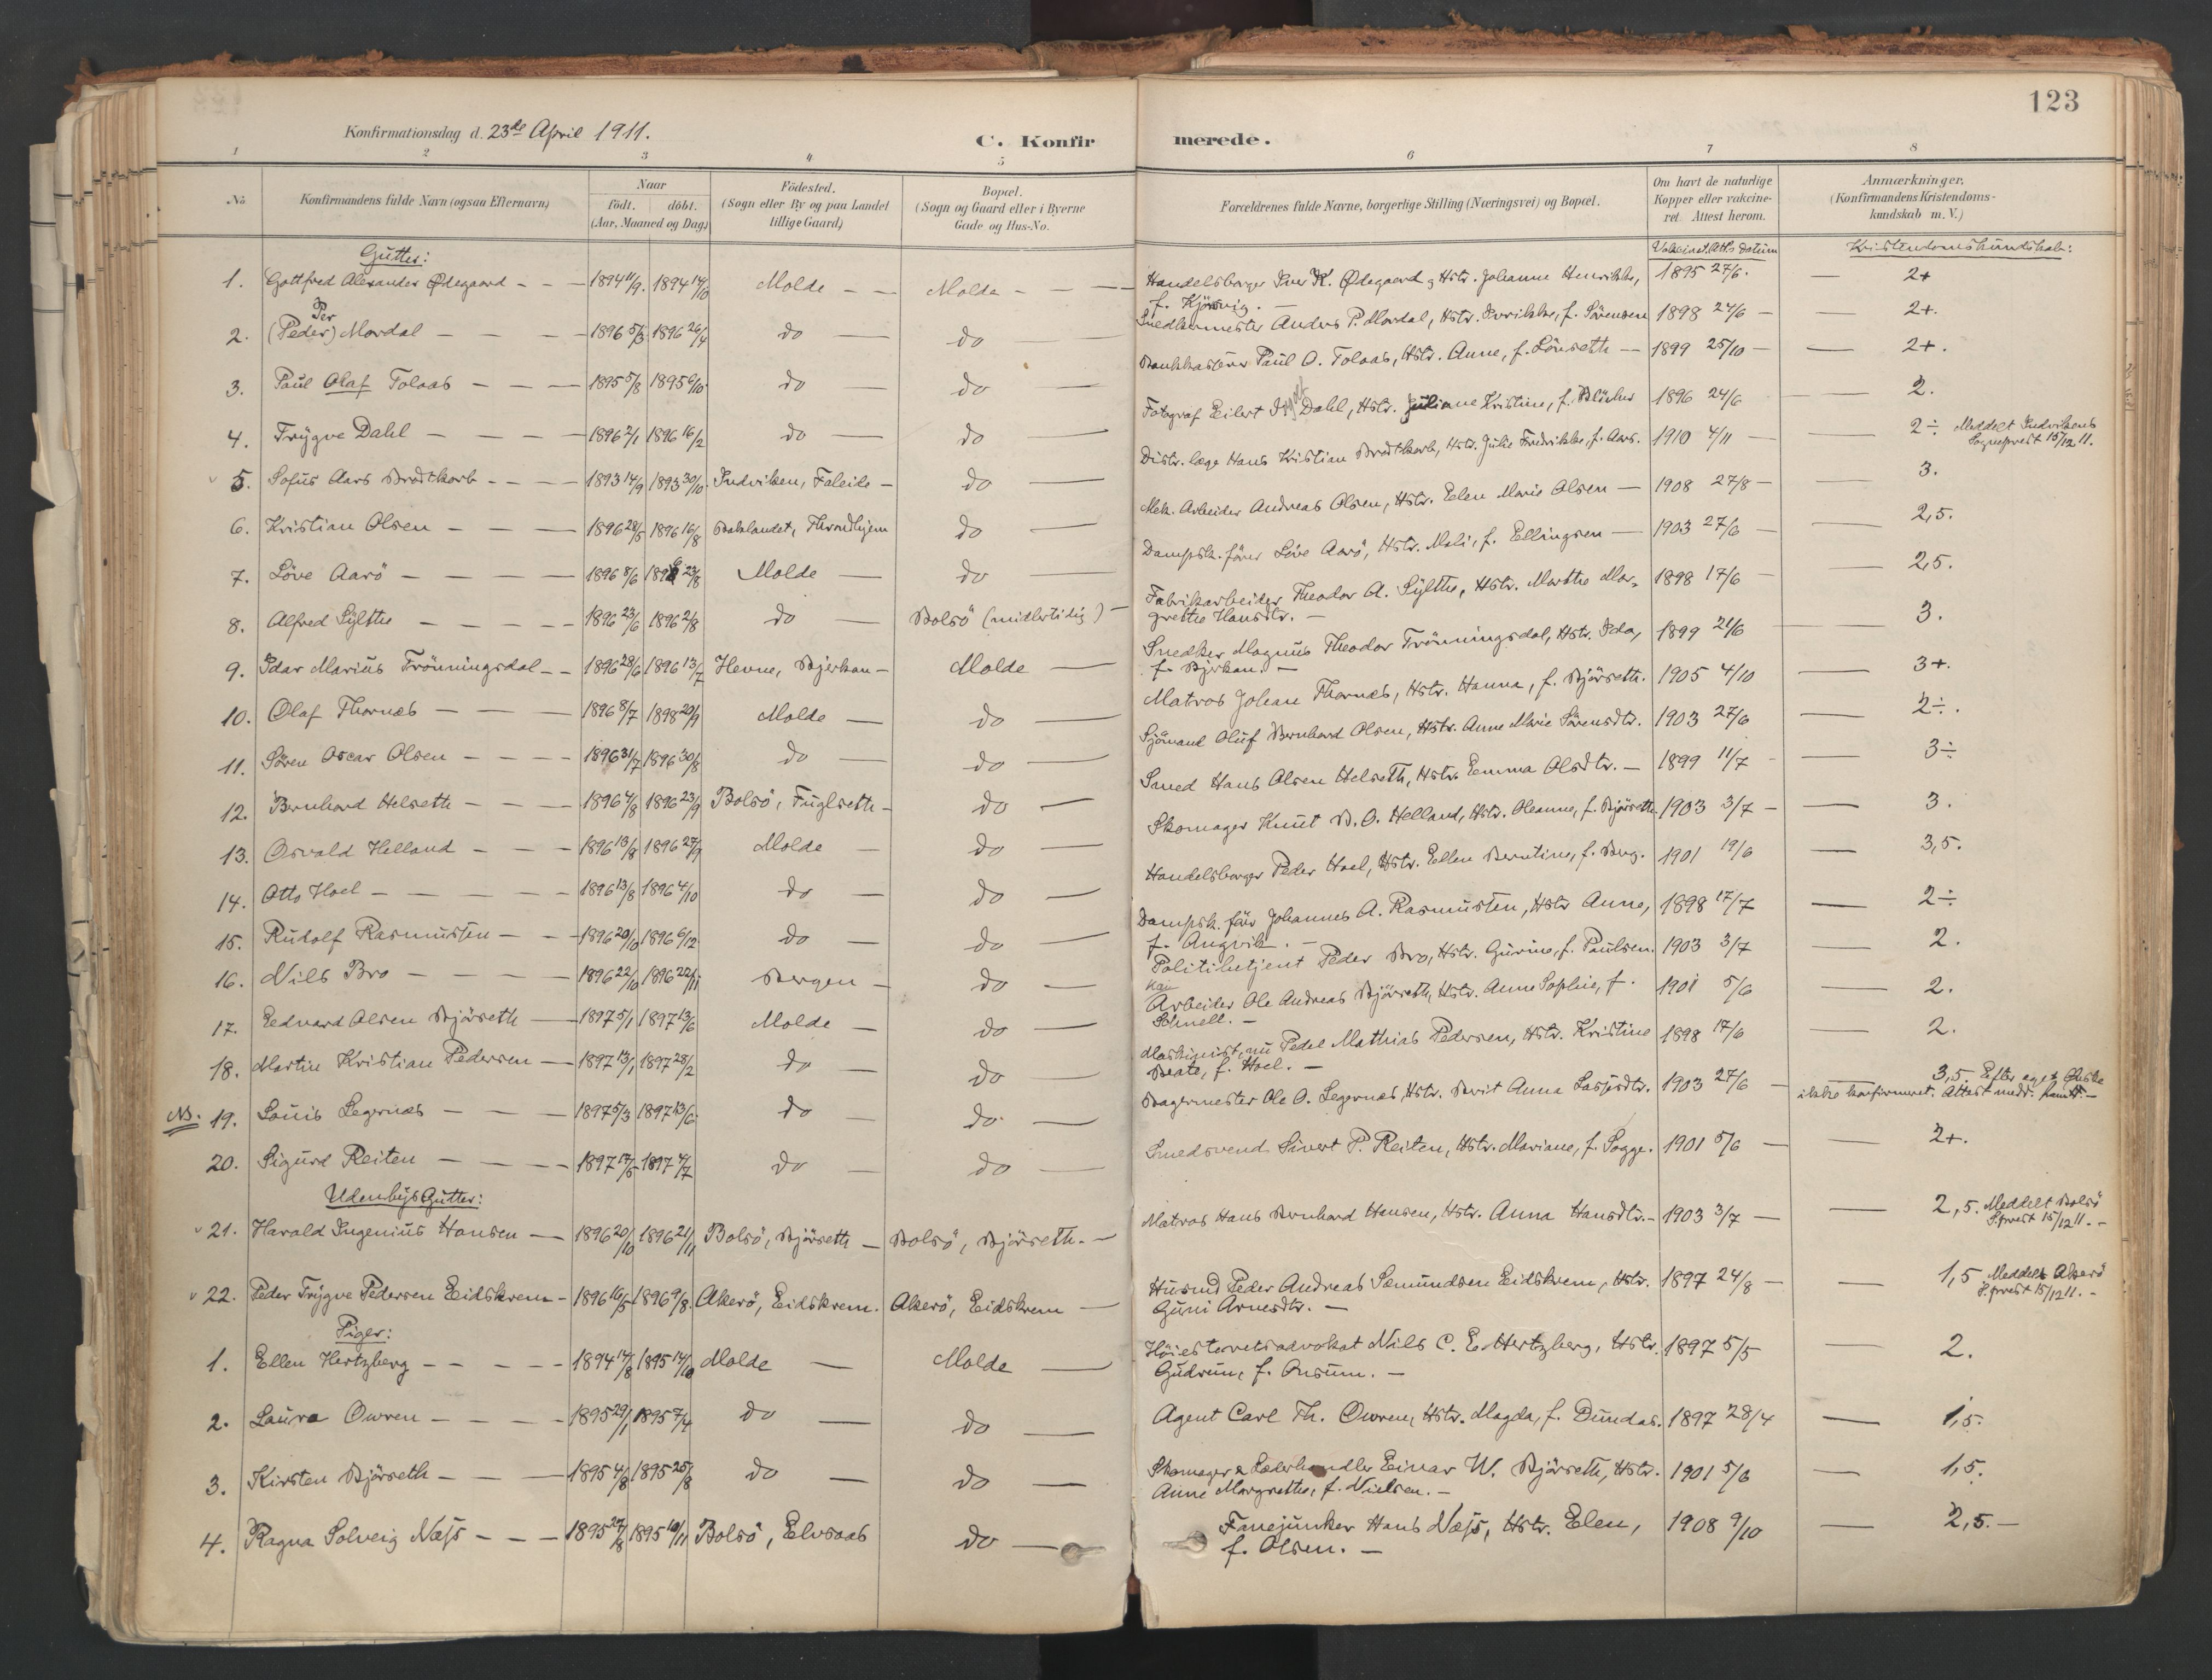 123
Konfirmationsdag d. 23de April 1911.
C. Konfirmerede.
1 2 3 4 5 6 7 8
No
Konfirmandens fulde Navn (ogsaa Efternavn)
Naar
født. døbt.
(Aar, Maaned og Dag)
Födested.
(Sogn eller By og paa Landet
tillige Gaard)
Bopæl.
(Sogn og Gaard eller i Byerne
Gade og Hus-No.
Forældrenes fulde Navne, borgerlige Stilling (Næringsvei) og Bopæl.
Om havt de naturlige
Kopper eller vakcine-
ret. Attest herom.
Anmærkninger.
(Konfirmandens Kristendoms-
kundskab m. V.)
Vakcinat. Att's datum
Kristendomskundskab:
Gutter:
1. Gottfred Alexander Ødegaard - - - 1894 11/9. 1894 14/10 Molde - - Molde - - - Handelsborger Iver K. Ødegaard, Hstr. Johanne Henrikke, 1895 27/6. — 2+
f. Kjørsvig. —
Per
2. (Peder) Mordal — — — 1896 5/3 1896 26/4 do — do — Snedkermester Anders P. Mordal, Hstr. Severikke, f. Sørensen 1898 24/6 — — 2+.
3. Paul Olaf Tolaas — — — 1895 5/8 1895 6/10 do — do — Bankkasserer Paul O. Tolaas, Hstr. Anne, f. Lönseth — 1899 25/10 — — 2+.
4. Trygve Dahl — — — 1896 2/1 1896 16/2 do — do — Fotograf Eilert Dahl, Hstr. Juliane Kristine, f. 1896 24/6 — 2.
5. Sofus Aars Brodtkorb - - - 1893 14/9 1893 30/10. Indviken, Faleide — do — Distr. læge Hans Kristian Brodtkorb, Hstr. Julie Fredrikke, f. Aars. 1910 4/11 — — 2÷ Meddelt Indvikens
Sogneprest 15/12 11.
6. Kristian Olsen — — — 1896 28/5 1896 16/8 Baklandet, Throndhjem do — Mek. Arbeider Andreas Olsen, Hstr. Elen Marie Olsen — 1908 27/8 — — 3.
7. Löve Aarö — — — 1896 8/6 1896 23/8 Molde — do — Dampsk. förer Löve Aarö, Hstr. Mali, f. Ellingsen — 1903 27/6 — — 2,5.
8. Alfred Sylthe - - - 1896 23/6 1896 2/8 do — Bolsö (midlertidig) — Fabrikarbeider Theodor A. Sylthe, Hstr. Marthe Mar- 1898 17/6 — — 2,5.
grethe Hansdtr. —
9. Idar Marius Trönningsdal - - 1896 28/6 1896 13/7 Hevne, Bjerkan — Molde — Snedker Magnus Theodor Trönningsdal, Hstr. Ida, 1899 21/6 — 3.
f. Bjerkan. —
10. Olaf Thornæs — — — 1896 8/7 1898 20/9 Molde — do — Matros Johan Thornæs, Hstr. Hanna, f. Bjørseth. 1905 4/10 — 3+.
11. Sören Oscar Olsen - - - 1896 31/7 1896 30/8 do — do — Sjömand Oluf Bernhard Olsen, Hstr. Anne Marie Sörensdtr. 1903 27/6 — 2÷.
12. Bernhard Helseth - - - 1896 4/8 1896 23/9 Bolsö, Fuglseth — do — Smed Hans Olsen Helseth, Hstr. Emma Olsdtr. — 1899 11/7 — 3÷
13. Osvald Helland - - - 1896 13/8 1896 27/9 Molde — do — Skomager Knut B. O. Helland, Hstr. Oleanne, f. Bjørseth 1903 3/7 — — 3.
14. Otto Hoel — — — 1896 13/8 1896 4/10 do — do — Handelsborger Peder Hoel, Hstr. Ellen Berntine, f. Berg. 1901 19/6 — 3,5.
15. Rudolf Rasmussen - - 1896 20/10 1896 6/12 do — do — Dampsk. fører Johannes A. Rasmussen, Hstr Anne, 1898 17/7 — 2÷
f. Angvik. —
16. Nils Bro — — — 1896 22/10 1896 22/11 Bergen — do — Politibetjent Peder Bro, Hstr. Gurine, f. Paulsen. 1903 3/7 — 2.
17. Edvard Olsen Bjørseth — 1897 5/1 1897 13/6 Molde — do — Arbeider Ole Andreas Bjørseth, Hstr. Anne Sophie, f. 1901 5/6 — 2.
Schnell. —
18. Martin Kristian Pedersen — 1897 13/1 1897 28/2 do — do — Maskinist, nu Pedel Mathias Pedersen, Hstr. Kristine 1898 17/6 — 2.
Beate, f. Hoel. —
NB. 19. Louis Legernæs — — — 1897 5/3 1897 13/6 do — do — Bagermester Ole O. Legernæs, Hstr. Berit Anna Lassesdtr. 1903 27/6 — — 3,5. Efter eget Ønske
ikke konfirmeret. Attest medd. ham.
20. Sigurd Reiten — — — 1897 17/5 1897 4/7 do — do — Smedsvend Sivert P. Reiten, Hstr. Mariane, f. Sogge. 1901 5/6 — — 2+.
Udenbys Gutter:
21. Harald Ingenius Hansen — 1896 20/10 1896 21/11 Bolsö, Bjørseth — Bolsö, Bjørseth. — Matros Hans Bernhard Hansen, Hstr. Anna Hansdtr. — 1903 3/7 — — 2,5. Meddelt Bolsö
S.prest 15/12 11. —
22. Peder Trygve Pedersen Eidskrem — 1896 16/5 1896 9/8. Akerö, Eidskrem. Akerö, Eidskrem — Husmd Peder Andreas Sæmundsen Eidskrem, Hstr. 1897 24/8 — — 1,5 Meddelt Akerö
Guni Arnesdtr. — S.prest 15/12 11. —
Piger:
1. Ellen Hertzberg - - - 1894 17/8 1895 14/10 Molde — Molde — Höiesteretsadvokat Nils C. E. Hertzberg, Hstr. 1897 5/5 — 2.
Gudrun, f. Onsum. —
2. Laura Owren - - - 1895 29/1 1895 7/4 do — do — Agent Carl Th. Owren, Hstr. Magda, f. Dundas. 1897 28/4 — 1,5.
3. Kirsten Bjørseth - - - 1895 4/8 1895 25/8 do — do — Skomager & Læderhandler Einar W. Bjørseth, Hstr. 1901 5/6 — 1,5.
Anne Margrethe, f. Nielsen. —
4. Ragna Solveig Næss - - - 1895 27/8 1895 10/11 Bolsö, Elvsaas do — Fanejunker Hans Næss, Hstr. Elen, 1908 9/10 — 2,5. —
f. Olsen. —